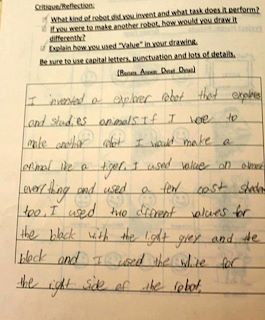 Critique/Reflection:
What kind of robot did you invent and what task does it perform?
If you were to make another robot, how would you draw it
differently?
Explain how you used "Value" in your drawing.
Be sure to use capital letters, punctuation and lots of details.
(Restate Answer Detail Detail)
I invented a explorer robot that explores
and studies animals If I were to
make another robot I would make a
animal like a tiger. I used value on almost
everything and used a few cast shadow
too. I used two diffrent values for
the black with the light grey and the
black and I used the white for
the right side of the robot.